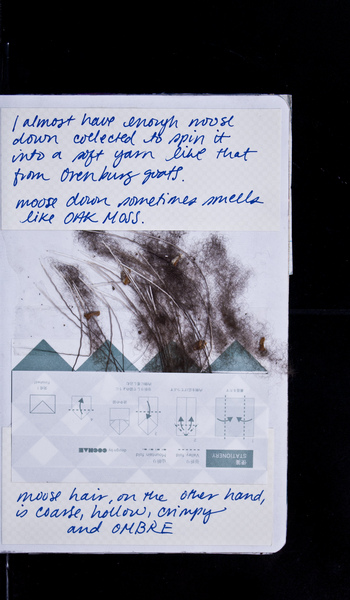 I almost have enough moose
down collected to spin it
into a soft yarn like that
from Orenburg goats.
moose down sometimes smells
like OAK MOSS.
STATIONERY
moose hair, on the other hand,
is coarse, hollow, crimpy
and OMBRE